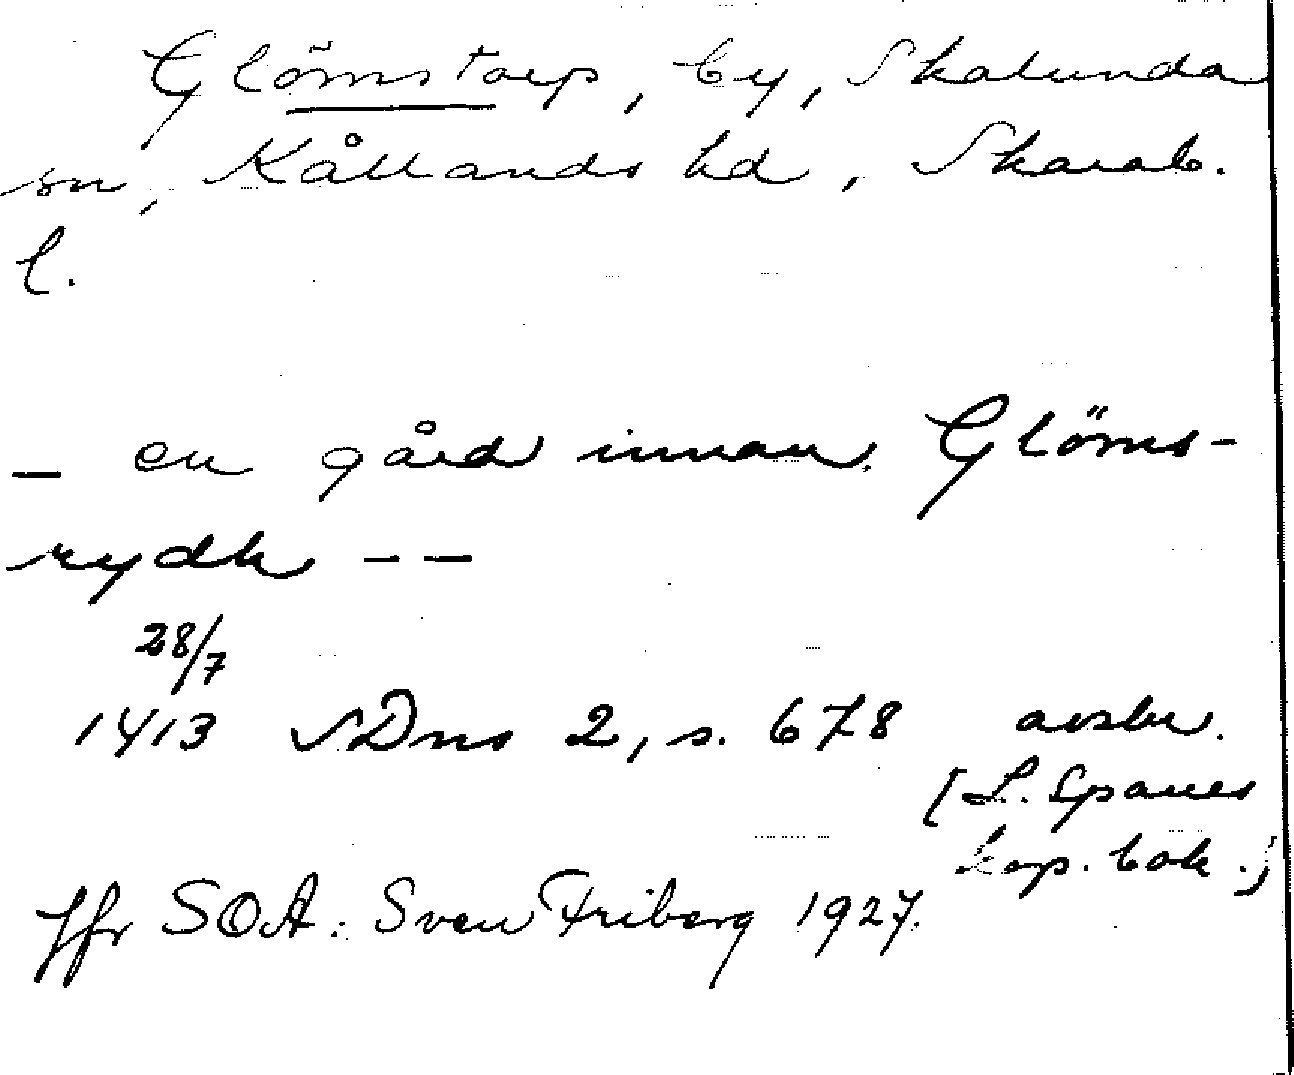 Glömstorp, by, Skalunda
sn, Kållands hd, Skarab.
l.
– en gård innan Glöms-
rydh – –
28/7
1413 SDns 2, s. 678 avskr.
[L. Spares
kop. bok.]
Jfr SOA: Sven Friberg 1927.